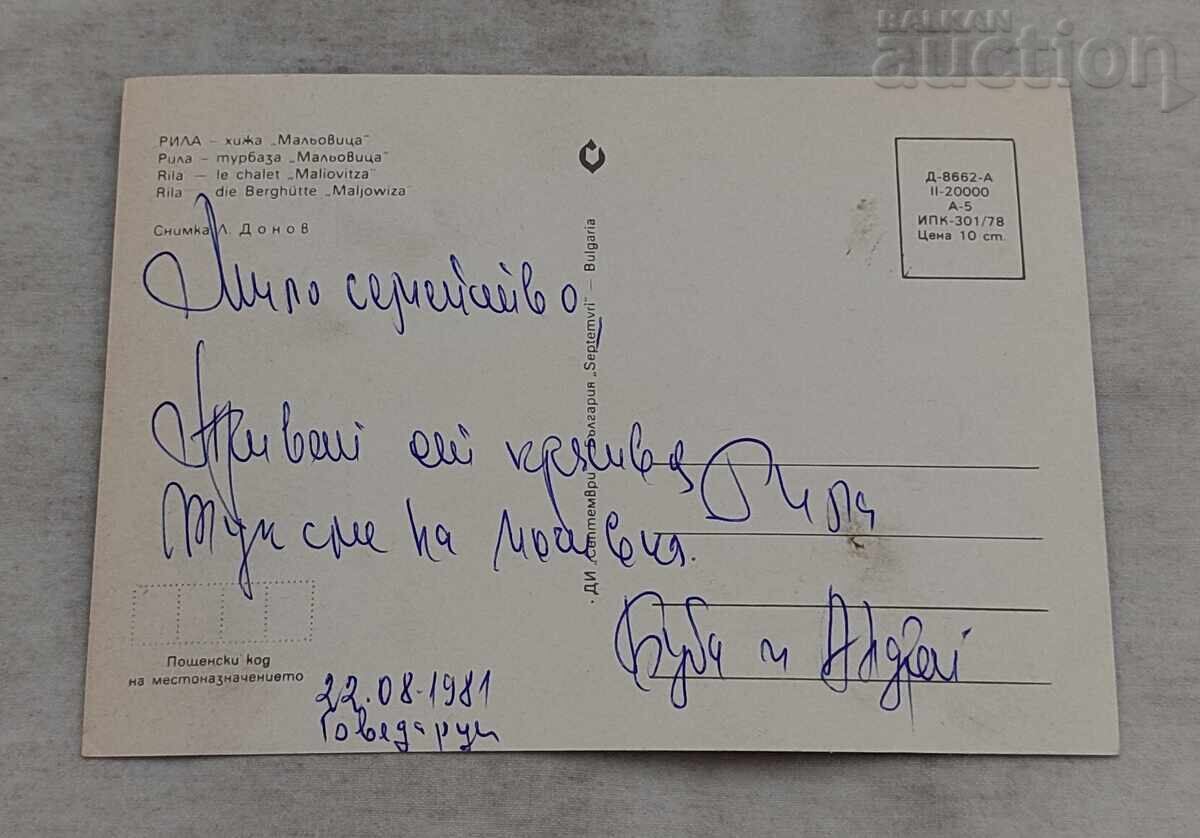 BALKAN
auction
РИЛА – хижа „Мальовица"
Рила – турбаза „Мальовица"
Rila – le chalet „Maliovitza"
Rila – die Berghütte „Maljowiza"
Снимка Л. Донов
Д-8662-А
II-20000
А-5
ИПК-301/78
Цена 10 ст.
ДИ „Септември" България „Septemvri" – Bulgaria
Мило семейство,
Привет от красива Рила
Тук сме на почивка.
Буба и Андрей
Пощенски код
на местоназначението
22.08.1981
Говедарци